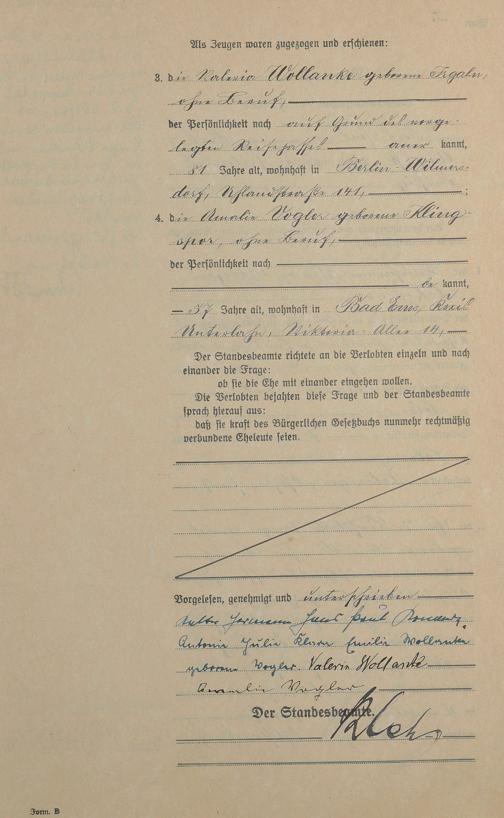 Als Zeugen waren zugezogen und erschienen:
3. die Valeria Wollanke geborene
ohne Beruf,
der Persönlichkeit nach auf Grund des vorge-
legten Reisepasses aner kannt,
51 Jahre alt, wohnhaft in Berlin-Wilmers-
dorf, Uhlandstraße 141, ;
4. die Amalie Vogler geborene Kling-
spor, ohne Beruf,
der Persönlichkeit nach
be kannt,
57 Jahre alt, wohnhaft in Bad Ems, Kreis
Unterlahn, Viktoria-Allee 14,
Der Standesbeamte richtete an die Verlobten einzeln und nach
einander die Frage:
ob sie die Ehe mit einander eingehen wollen.
Die Verlobten bejahten diese Frage und der Standesbeamte
sprach hierauf aus:
daß sie kraft des Bürgerlichen Gesetzbuchs nunmehr rechtmäßig
verbundene Eheleute seien.
Vorgelesen, genehmigt und unterschrieben
Hermann Hans Paul
Antonie Julie Klara Emilie Wollanke
geborene Vogler. Valeria Wollanke
Amalie Vogler
Der Standesbeamte.
Form. B